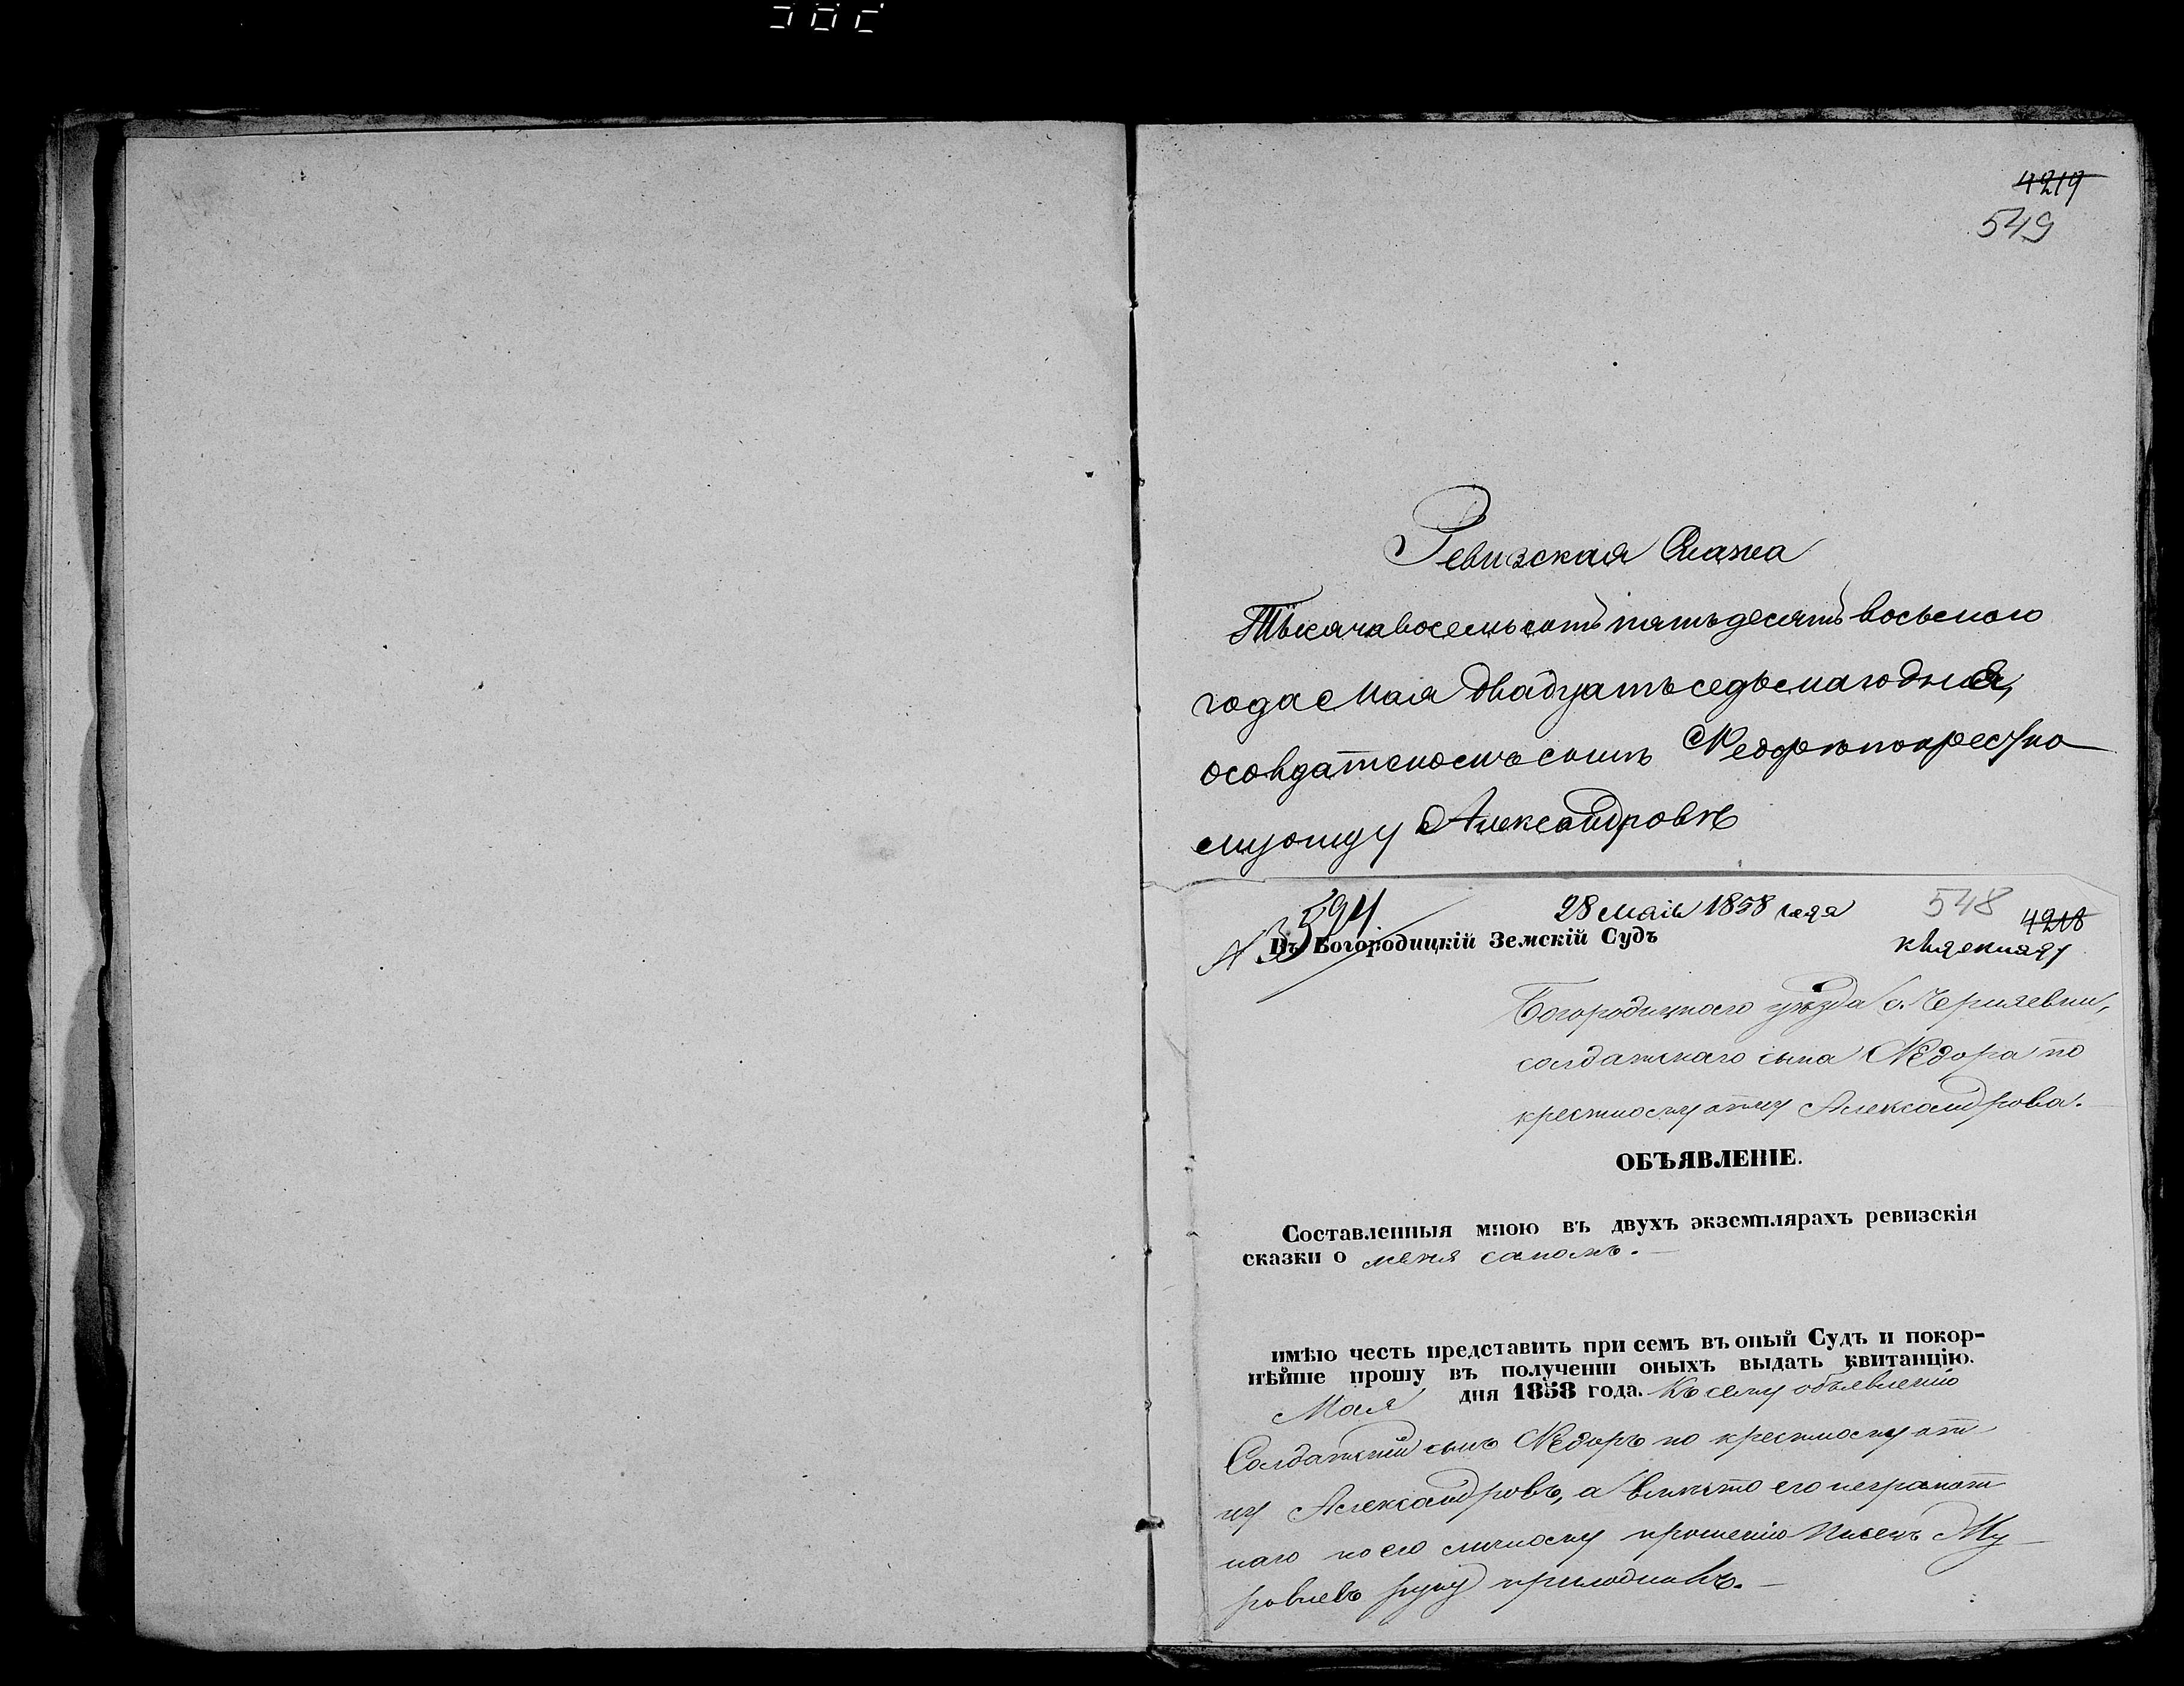 4219
549
Ревизская Сказка
Тысяча восемь сотъ пятьдесятъ восьмого
года Мая двадцать седьмаго дня,
о солдатскомъ сынѣ Ѳедорѣ по крестно
му отцу Александровѣ
№ 3594
28 Мая 1858 года
548
4218
Въ Богородицкій Земскій Судъ
Богородицкаго уѣзда с. Черняевки,
солдатскаго сына Ѳедора по
крестному отцу Александрова.
ОБЪЯВЛЕНІЕ.
Составленныя мною въ двухъ экземплярахъ ревизскія
сказки о меня самомъ.
имѣю честь представить при семъ въ оный Судъ и покор-
нѣйше прошу въ полученіи оныхъ выдать квитанцію.
Мая дня 1858 года. Къ сему объявленію
Солдатскій сынъ Ѳедоръ по крестному от
цу Александровъ, а вмѣсто его неграмот
наго по его личному прошенію Писецъ
руку приложилъ.